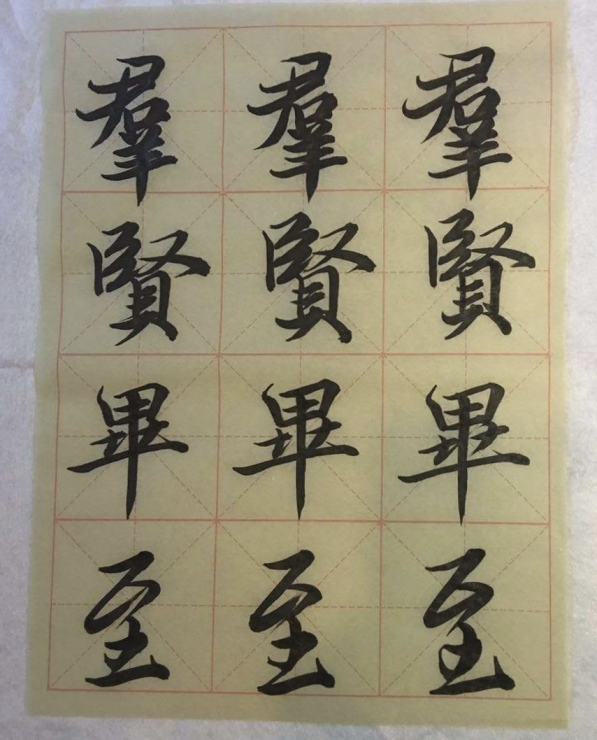 羣賢畢至
羣賢畢至
羣賢畢至